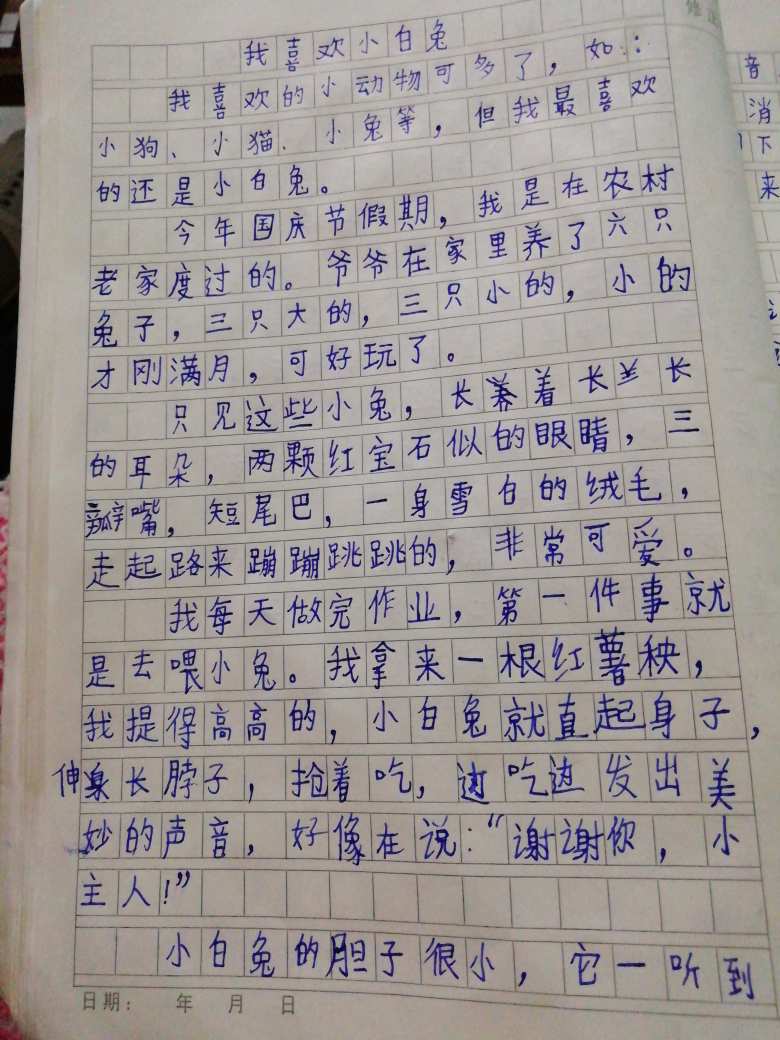 我喜欢小白兔
我喜欢的小动物可多了，如：
小狗、小猫、小兔等，但我最喜欢
的还是小白兔。
今年国庆节假期，我是在农村
老家度过的。爷爷在家里养了六只
兔子，三只大的，三只小的，小的
才刚满月，可好玩了。
只见这些小兔，长着长长
的耳朵，两颗红宝石似的眼睛，三
瓣嘴，短尾巴，一身雪白的绒毛，
走起路来蹦蹦跳跳的，非常可爱。
我每天做完作业，第一件事就
是去喂小兔。我拿来一根红薯秧，
我提得高高的，小白兔就直起身子，
伸长脖子，抢着吃，边吃边发出美
妙的声音，好像在说：“谢谢你，小
主人！”
小白兔的胆子很小，它一听到
日期： 年 月 日
音
消
下
来